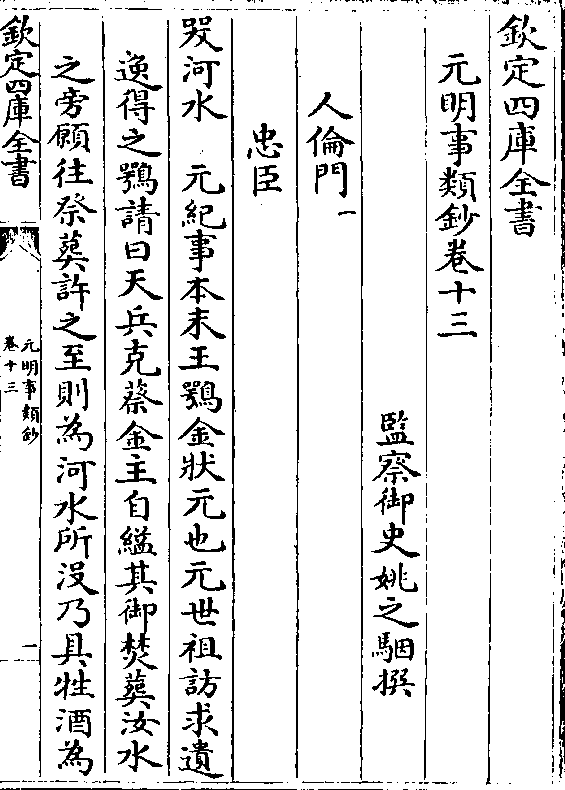 欽定四庫全書
元明事類鈔卷十三
監察御史姚之駰撰
人倫門一
忠臣
哭河水　元紀事本末王鶚金狀元也元世祖訪求遺
逸得之鶚請曰天兵克蔡金主自縊其御焚葬汝水
之旁願往祭葬許之至則為河水所没乃具牲酒為
欽定四庫全書
元明事類鈔
卷十三
一